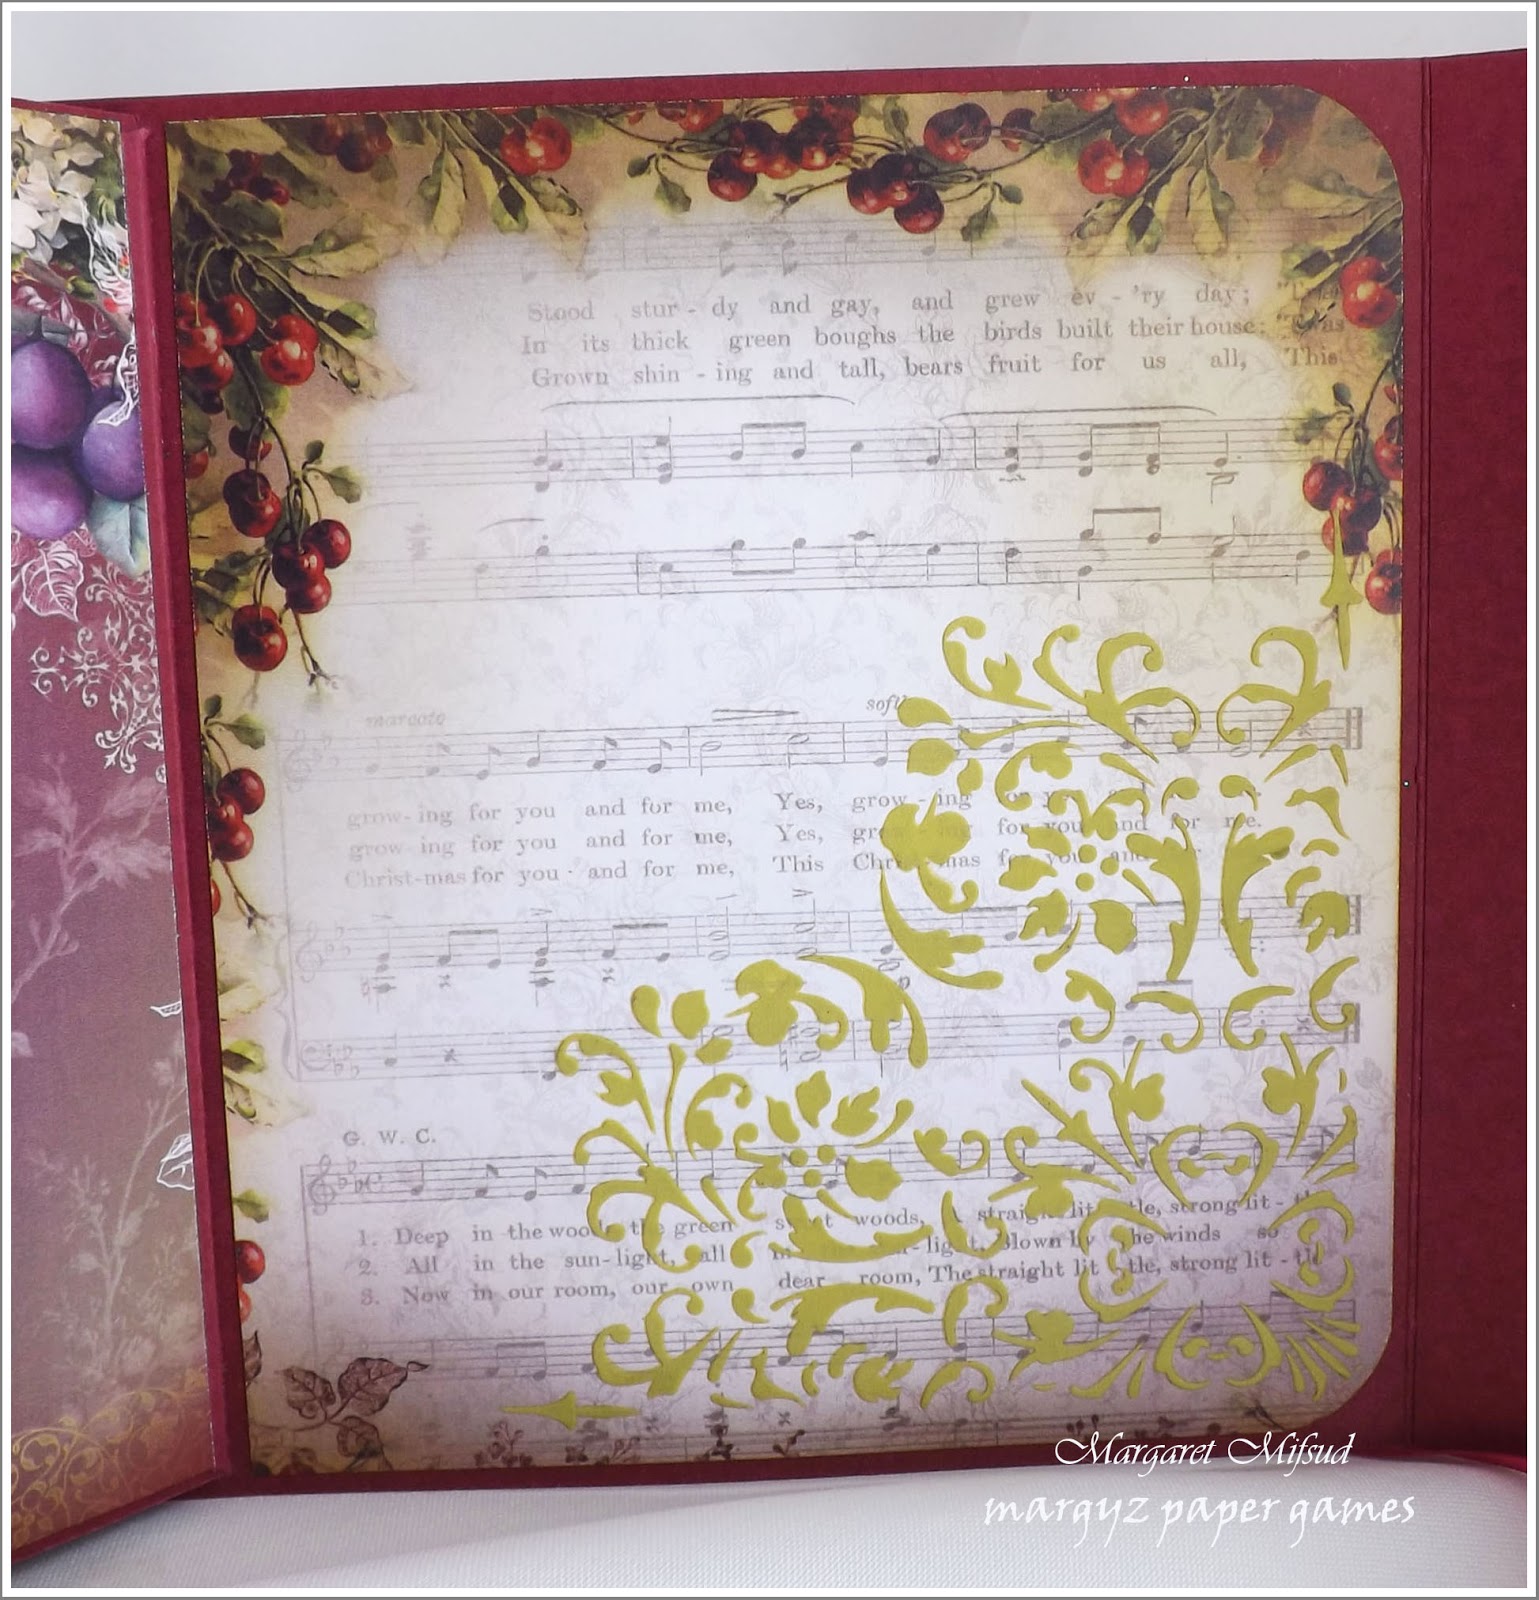 Stood stur - dy and gay, and grew ev - 'ry day; "Twas
In its thick green boughs the birds built their house; 'Twas
Grown shin - ing and tall, bears fruit for us all, This
marcato
soft
grow - ing for you and for me, Yes, grow - ing for you and
grow ing for you and for me, Yes, for you and for me.
Christ - mas for you and for me, This Christ - mas for you and
G. W. C.
1. Deep in the woods, the green sweet woods, A straight lit - tle, strong lit -
2. All in the sun - light, all light, Blown by the winds so
3. Now in our room, our own dear room, The straight lit - tle, strong lit - tle
Margaret Mifsud
margyz paper games